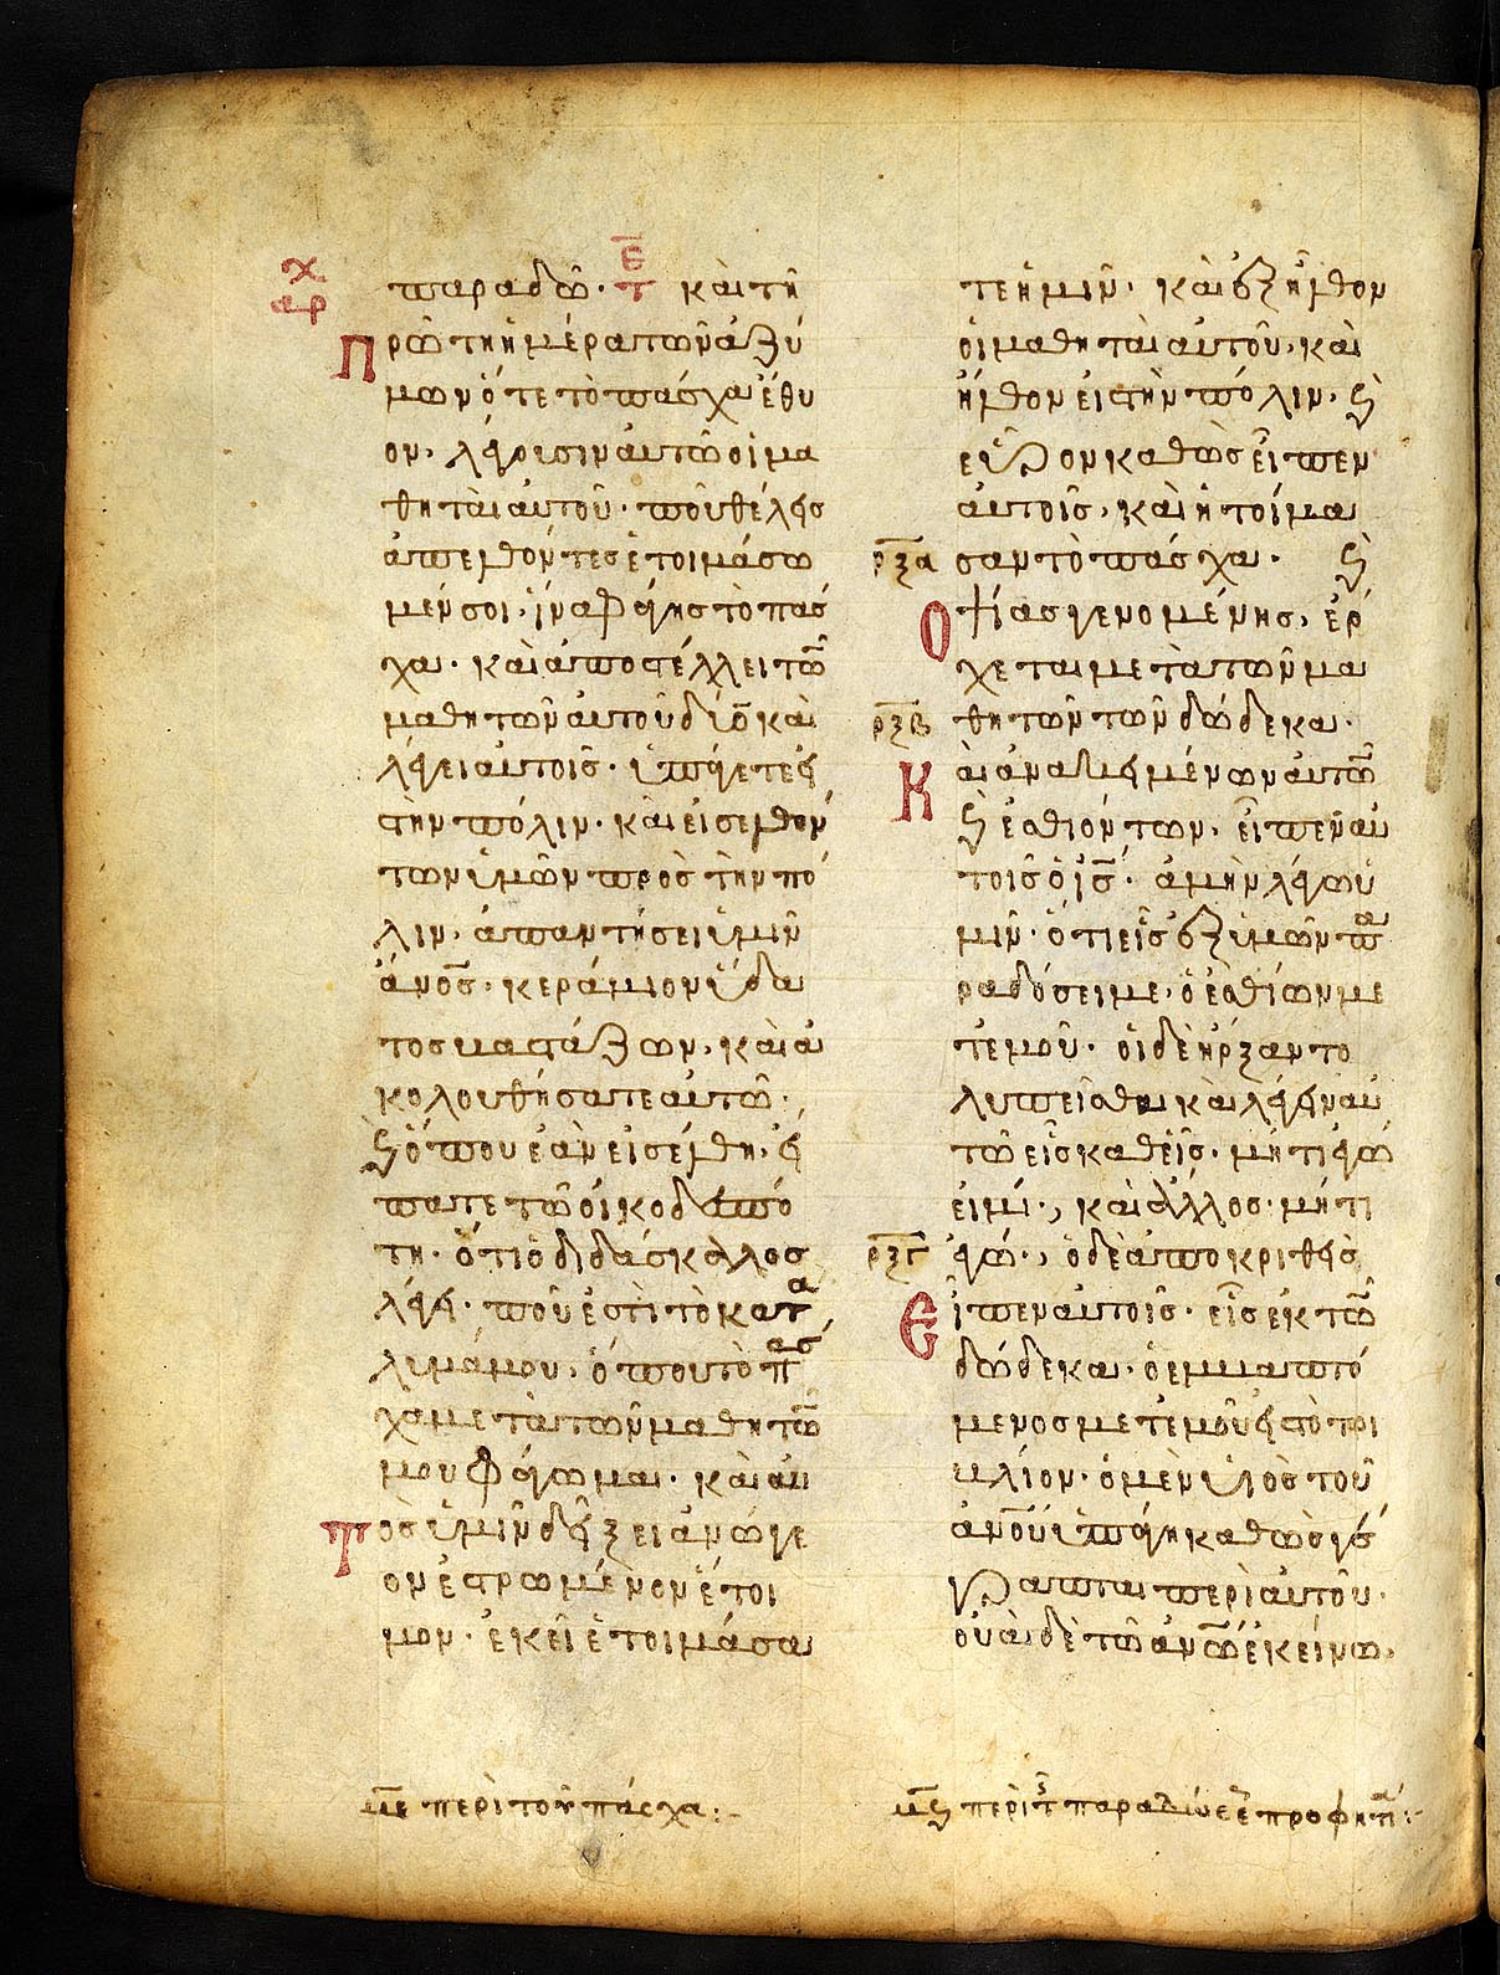 παραδῶ· τε καὶ τῆ
Πρώτη ἡμέρα τῶν ἀζύ
μων ὅτε τὸ πάσχα ἔθυ
ον, λέγουσιν αὐτῶ οἱ μα
θηταὶ αὐτοῦ· ποῦ θέλεις
ἀπελθόντες ἑτοιμάσω
μέν σοι, ἵνα φάγης τὸ πάσ
χα· καὶ ἀποστέλλει τῶ
μαθητῶν αὐτοῦ δύο καὶ
λέγει αὐτοῖς· ὑπάγετε εἰς
τὴν πόλιν· καὶ εἰσελθόν
των ὑμῶν πρὸς τὴν πό
λιν, ἀπαντήσει ὑμῖν
ἄνος· κεράμιον ὕδα
τος βαστάζων, καὶ ἀ
κολουθήσατε αὐτῶ·
ϗ ὅπου ἐὰν εἰσέλθη, εἴ
πατε τῶ οἰκοδεσπό
τη· ὅτι ὁ διδάσκαλος
λέγει· ποῦ ἐστὶ τὸ κατά
λυμά μου, ὅπου τὸ πάσ
χα μετὰ τῶν μαθητῶ
μου φάγωμαι· καὶ αὐ
τὸς ὑμῖν δείξει ἀνώγε
ον ἐστρωμένον ἕτοι
μον· ἐκεῖ ἑτοιμάσα
μ̅ε̅ περὶ τοῦ πάσχα:
τε ἡμῖν· καὶ ἐξῆλθον
οἱ μαθηταὶ αὐτοῦ, καὶ
ἦλθον εἰς τὴν πόλιν, ϗ
εὗρον καθὼς εἶπεν
αὐτοῖς, καὶ ἡτοίμα
ρ̅ξ̅α̅ σαν τὸ πάσχα· ϗ
Ὀψίας γενομένης, ἔρ
χεται μετὰ τῶν μα
ρ̅ξ̅β̅ θητῶν τῶν δώδεκα·
Καὶ ἀνακειμένων αὐτῶ
ϗ ἐσθιόντων, εἶπεν αὐ
τοῖς ὁ ι̅ς̅· ἀμὴν λέγω ὑ
μῖν· ὅτι εἷς ἐξ ὑμῶν πα
ραδώσει με, ὁ ἐσθίων με
τ' ἐμοῦ· οἱ δὲ ἤρξαντο
λυπεῖσθαι καὶ λέγειν αὐ
τῶ εἷς καθεῖς· μήτι ἐγώ
εἰμι·, καὶ ἄλλος· μήτι
ρ̅ξ̅γ̅ ἐγώ·, ὁ δὲ ἀποκριθεὶς
Εἶπεν αὐτοῖς· εἷς ἐκ τῶ
δώδεκα, ὁ ἐμβαπτό
μενος μετ' ἐμοῦ εἰς τὸ τρυ
βλίον· ὁ μὲν υἱὸς τοῦ
ἀνου ὑπάγη καθὼς γέ
γραπται περὶ αὐτοῦ·
οὐαὶ δὲ τῶ ἀνω ἐκείνω,
μ̅ϛ̅ περὶ τ παραδόσε προφητ